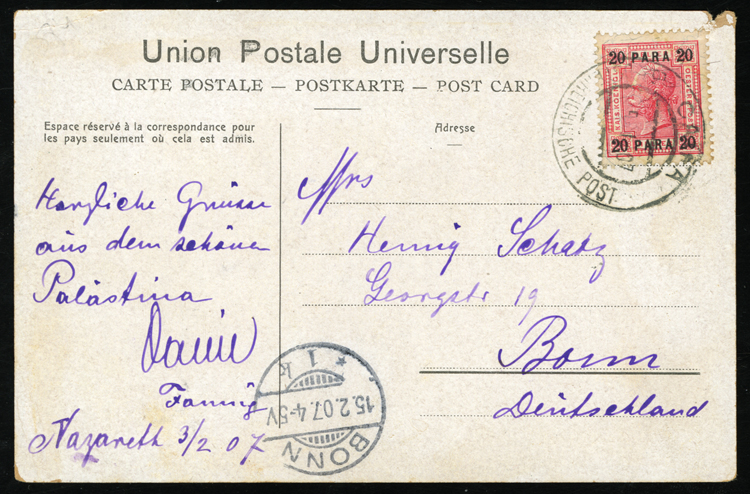 Union Postale Universelle
CARTE POSTALE — POSTKARTE — POST CARD
Espace réservé à la correspondance pour
les pays seulement où cela est admis.
Adresse
20 PARA 20
20 PARA 20
POST
Herzliche Grüsse
aus dem schönen
Palästina
Nazareth 3/2 07
Hennig Schatz
Georgstr 19
Bonn
Deutschland
BONN
15.2.07.4-5V
* 1 k